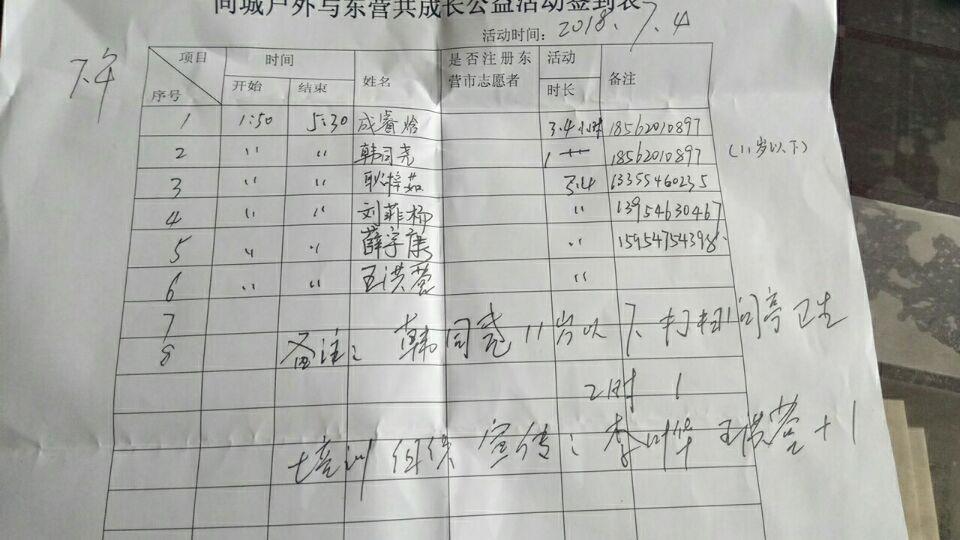 同城户外与东营共成长公益活动签到表
活动时间: 2018.7.4
下午
项目 序号 时间 开始 结束 姓名 是否注册东营市志愿者 活动时长 备注
1 1:50 5:30 成睿焓 3.4小时 18562010897
2 〃 〃 韩同尧 1 18562010897 (11岁以下)
3 〃 〃 耿梓茹 3.4 13355460235
4 〃 〃 刘菲杨 〃 13954630467
5 〃 〃 薛宇康 〃 15954754398
6 〃 〃 王洪莹 〃
7
8 备注: 韩同尧 11岁以下、打扫问亭卫生
2时 1
培训 组织 宣传: 李 华 王洪莹 +1